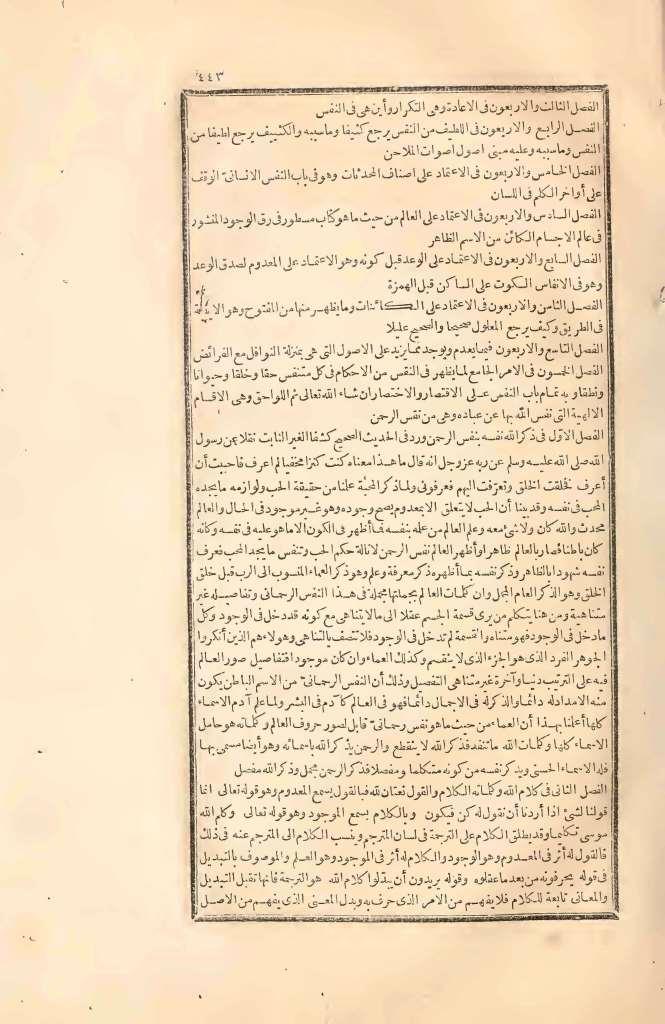 ٤٤٣
الفصل الثالث والاربعون فى الاعادة وهى التكرار وأين هى فى النفس
الفصل الرابع والاربعون فى اللطيف من النفس يرجع كثيفا وما سببه والكثيف يرجع لطيفا من
النفس وما سببه وعليه مبنى أصول أصوات الملاحن
الفصل الخامس والاربعون فى الاعتماد على اصناف المحدثات وهو فى باب النفس الانسانى الوقف
على أواخر الكلم فى اللسان
الفصل السادس والاربعون فى الاعتماد على العالم من حيث ما هو كتاب مسطور فى رق الوجود المنشور
فى عالم الاجسام الكائن من الاسم الظاهر
الفصل السابع والاربعون فى الاعتماد على الوعد قبل كونه وهو الاعتماد على المعدوم لصدق الوعد
وهو فى الانفاس السكوت على الساكن قبل الهمزة
الفصل الثامن والاربعون فى الاعتماد على الكائنات وما يظهر منها من المفتوح وهو
فى الطريق وكيف يرجع المعلول صحيحا والصحيح عليلا
الفصل التاسع والاربعون فيما يعدم ويوجد مما يزيد على الاصول التى هى بمنزلة النوافل مع الفرائض
الفصل الخمسون فى الامر الجامع لما يظهر فى النفس من الاحكام فى كل متنفس حقا وخلقا وحيوانا
ونطقا وبه تمام باب النفس على الاقتصار والاختصار ان شاء الله تعالى ثم اللواحق وهى الاقسام
الالهية التى نفس الله بها عن عباده وهى من نفس الرحمن
الفصل الاول فى ذكر الله نفسه بنفس الرحمن ورد فى الحديث الصحيح كشفا الغير الثابت نقلا عن رسول
الله صلى الله عليه وسلم عن ربه عز وجل انه قال ما هذا معناه كنت كنزا مخفيا لم اعرف فاحببت أن
أعرف فخلقت الخلق وتعرفت اليهم فعرفونى ولما ذكر المحبة علمنا من حقيقة الحب ولوازمه ما يجده
المحب فى نفسه وقد بينا أن الحب لا يتعلق الا بمعدوم يصح وجوده وهو غير موجود فى الحال والعالم
محدث والله كان ولا شئ معه وعلم العالم من علمه بنفسه فما أظهر فى الكون الا ما هو عليه فى نفسه وكانه
كان باطنا فصار بالعالم ظاهرا وأظهر العالم نفس الرحمن لازالة حكم الحب وتنفس ما يجد المحب فعرف
نفسه شهودا بالظاهر وذكر نفسه بما أظهره ذكر معرفة وعلم وهو ذكر العماء المنسوب الى الرب قبل خلق
الخلق وهو الذكر العام المجمل وان كلمات العالم بجملتها مجملة فى هذا النفس الرحمانى وتفاصيله غير
متناهية ومن هنا يتكلم من يرى قسمة الجسم عقلا الى ما لا يتناهى مع كونه قد دخل فى الوجود وكل
ما دخل فى الوجود فهو متناه والقسمة لم تدخل فى الوجود فلا تتصف بالتناهى وهولاء هم الذين أنكروا
الجوهر الفرد الذى هو الجزء الذى لا ينقسم وكذلك العماء وان كان موجودا فتفاصيل صور العالم
فيه على الترتيب دنيا وآخرة غير متناهى التفصيل وذلك أن النفس الرحمانى من الاسم الباطن يكون
منه الامداد له دائما والذكر له فى الاجمال دائما فهو فى العالم كآدم فى البشر ولما علم آدم الاسماء
كلها أعلمنا بهذا أن العماء من حيث ما هو نفس رحمانى قابل لصور حروف العالم وكلماته هو حامل
الاسماء كلها وكلمات الله ما تنفد فذكر الله لا ينقطع والرحمن يذكر الله باسمائه وهو أيضا مسمى بها
فله الاسماء الحسنى ويذكر نفسه من كونه متكلما ومفصلا فذكر الرحمن مجمل وذكر الله مفصل
الفصل الثانى فى كلام الله وكلماته الكلام والقول نعتان لله فبالقول يسمع المعدوم وهو قوله تعالى انما
قولنا لشئ اذا أردنا أن نقول له كن فيكون وبالكلام يسمع الموجود وهو قوله تعالى وكلم الله
موسى تكليما وقد يطلق الكلام على الترجمة فى لسان المترجم وينسب الكلام الى المترجم عنه فى ذلك
فالقول له أثر فى المعدوم وهو الوجود والكلام له أثر فى الموجود وهو العلم والموصوف بالتبديل
فى قوله يحرفونه من بعد ما عقلوه وقوله يريدون أن يبدلوا كلام الله هو الترجمة فانها تقبل التبديل
والمعانى تابعة للكلام فلا يفهم من الامر الذى حرف به وبدل المعنى الذى يفهم من الاصل